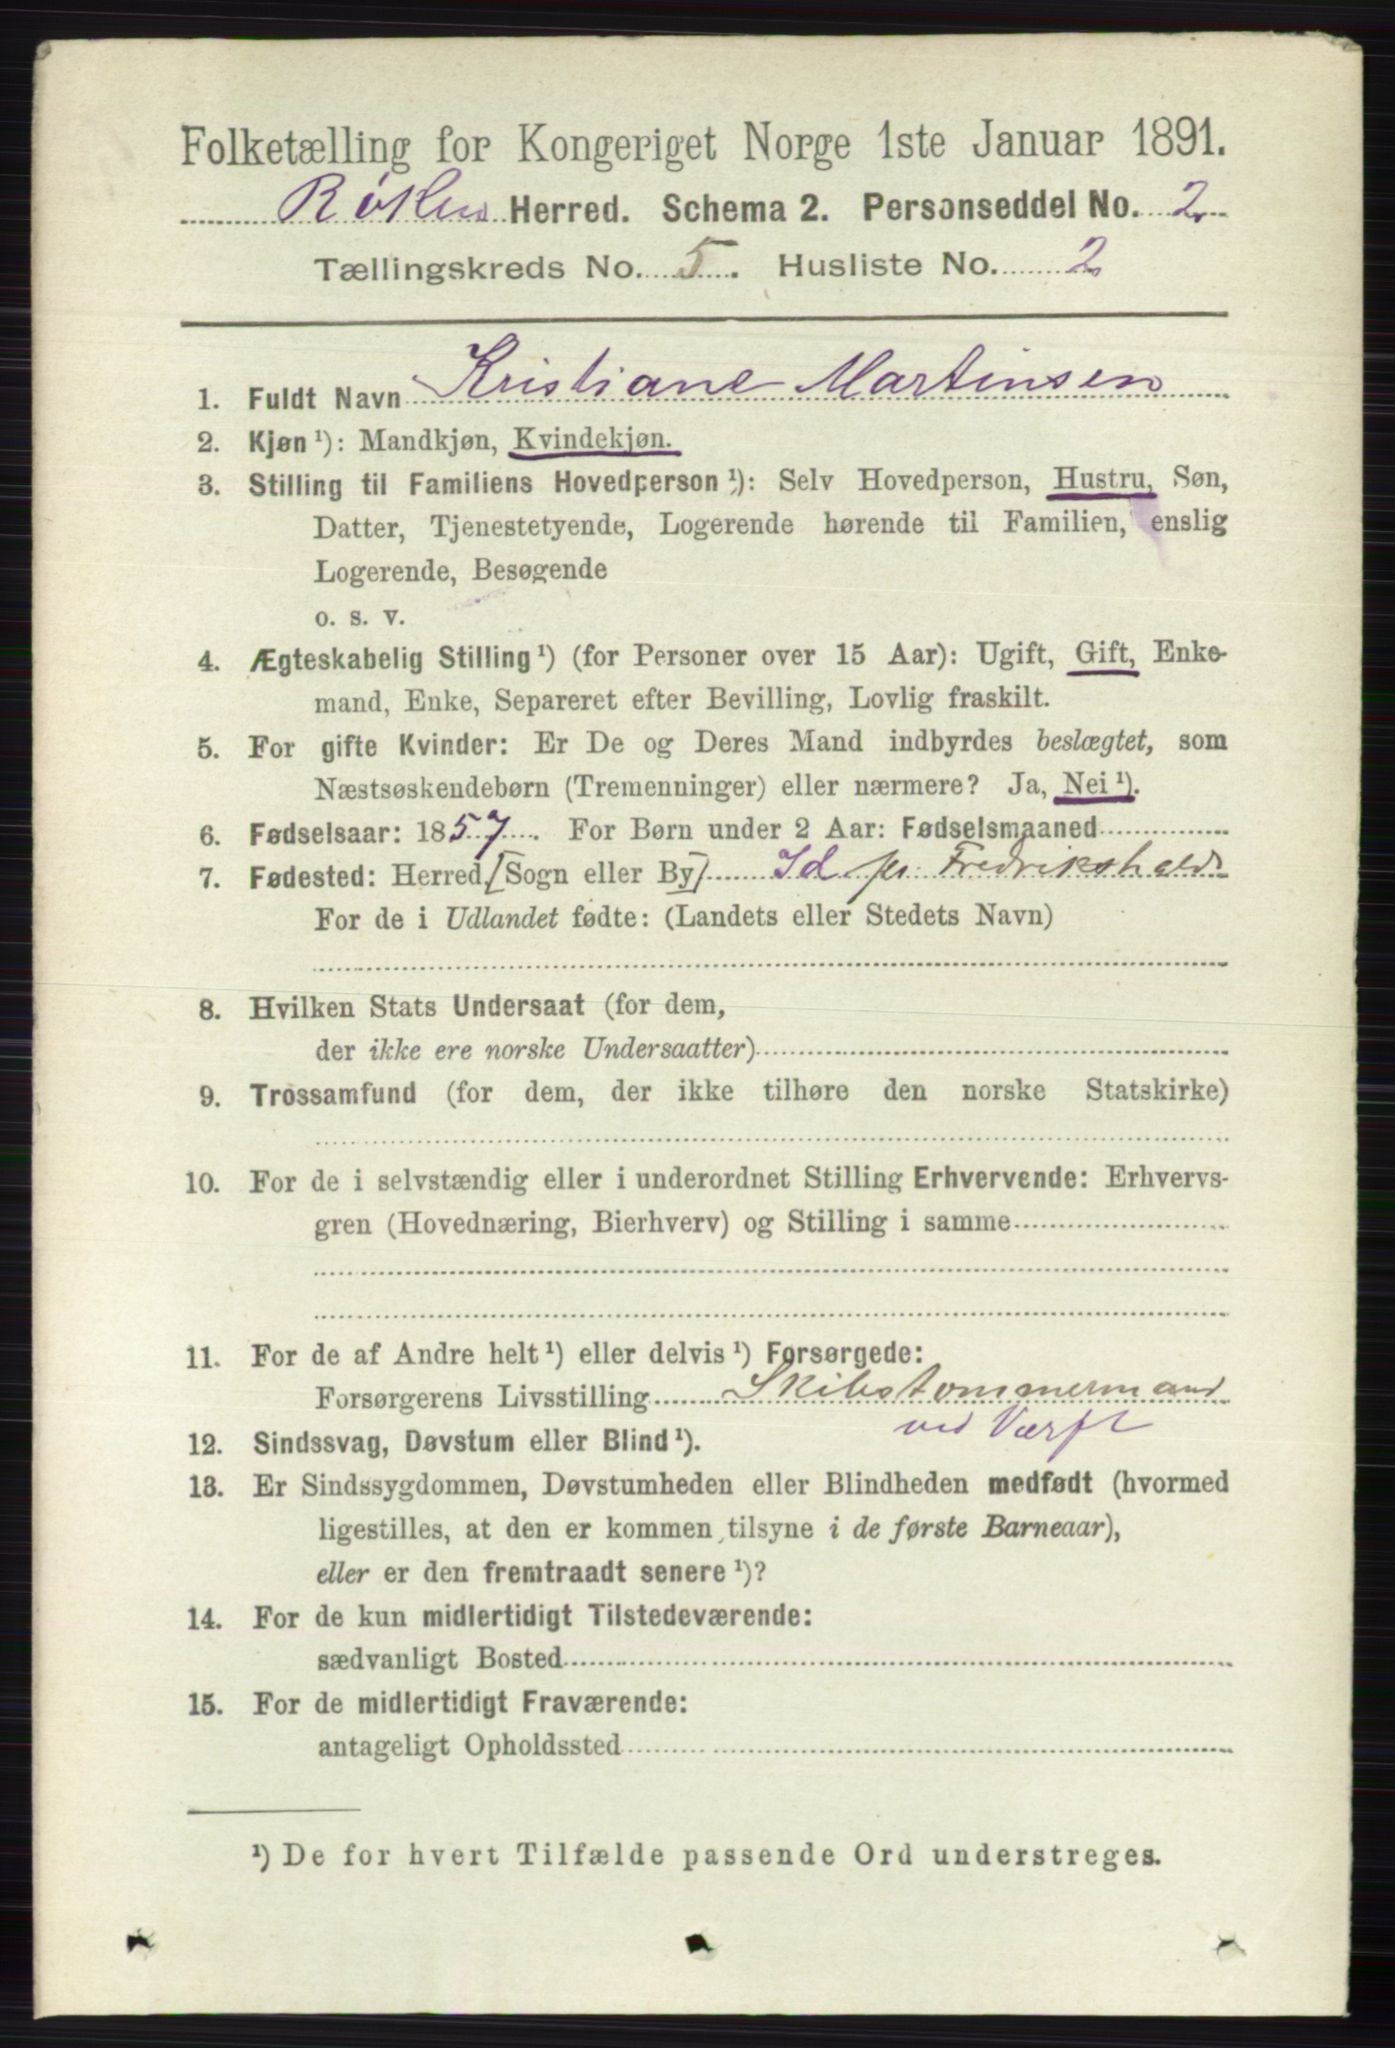 Folketælling for Kongeriget Norge 1ste Januar 1891.
Røken Herred. Schema 2. Personseddel No. 2
Tællingskreds No. 5. Husliste No. 2
1. Fuldt Navn Kristiane Martinsen
2. Kjøn ¹): Mandkjøn, Kvindekjøn.
3. Stilling til Familiens Hovedperson ¹): Selv Hovedperson, Hustru, Søn,
Datter, Tjenestetyende, Logerende hørende til Familien, enslig
Logerende, Besøgende
o. s. v.
4. Ægteskabelig Stilling ¹) (for Personer over 15 Aar): Ugift, Gift, Enke-
mand, Enke, Separeret efter Bevilling, Lovlig fraskilt.
5. For gifte Kvinder: Er De og Deres Mand indbyrdes beslægtet, som
Næstsøskendebørn (Tremenninger) eller nærmere? Ja, Nei ¹).
6. Fødselsaar: 1857. For Børn under 2 Aar: Fødselsmaaned
7. Fødested: Herred [Sogn eller By] Id pr. Fredrikshald
For de i Udlandet fødte: (Landets eller Stedets Navn)
8. Hvilken Stats Undersaat (for dem,
der ikke ere norske Undersaatter)
9. Trossamfund (for dem, der ikke tilhøre den norske Statskirke)
10. For de i selvstændig eller i underordnet Stilling Erhvervende: Erhvervs-
gren (Hovednæring, Bierhverv) og Stilling i samme
11. For de af Andre helt ¹) eller delvis ¹) Forsørgede:
Forsørgerens Livsstilling Skibstømmermand
ved Værft
12. Sindssvag, Døvstum eller Blind ¹).
13. Er Sindssygdommen, Døvstumheden eller Blindheden medfødt (hvormed
ligestilles, at den er kommen tilsyne i de første Barneaar),
eller er den fremtraadt senere ¹)?
14. For de kun midlertidigt Tilstedeværende:
sædvanligt Bosted
15. For de midlertidigt Fraværende:
antageligt Opholdssted
¹) De for hvert Tilfælde passende Ord understreges.